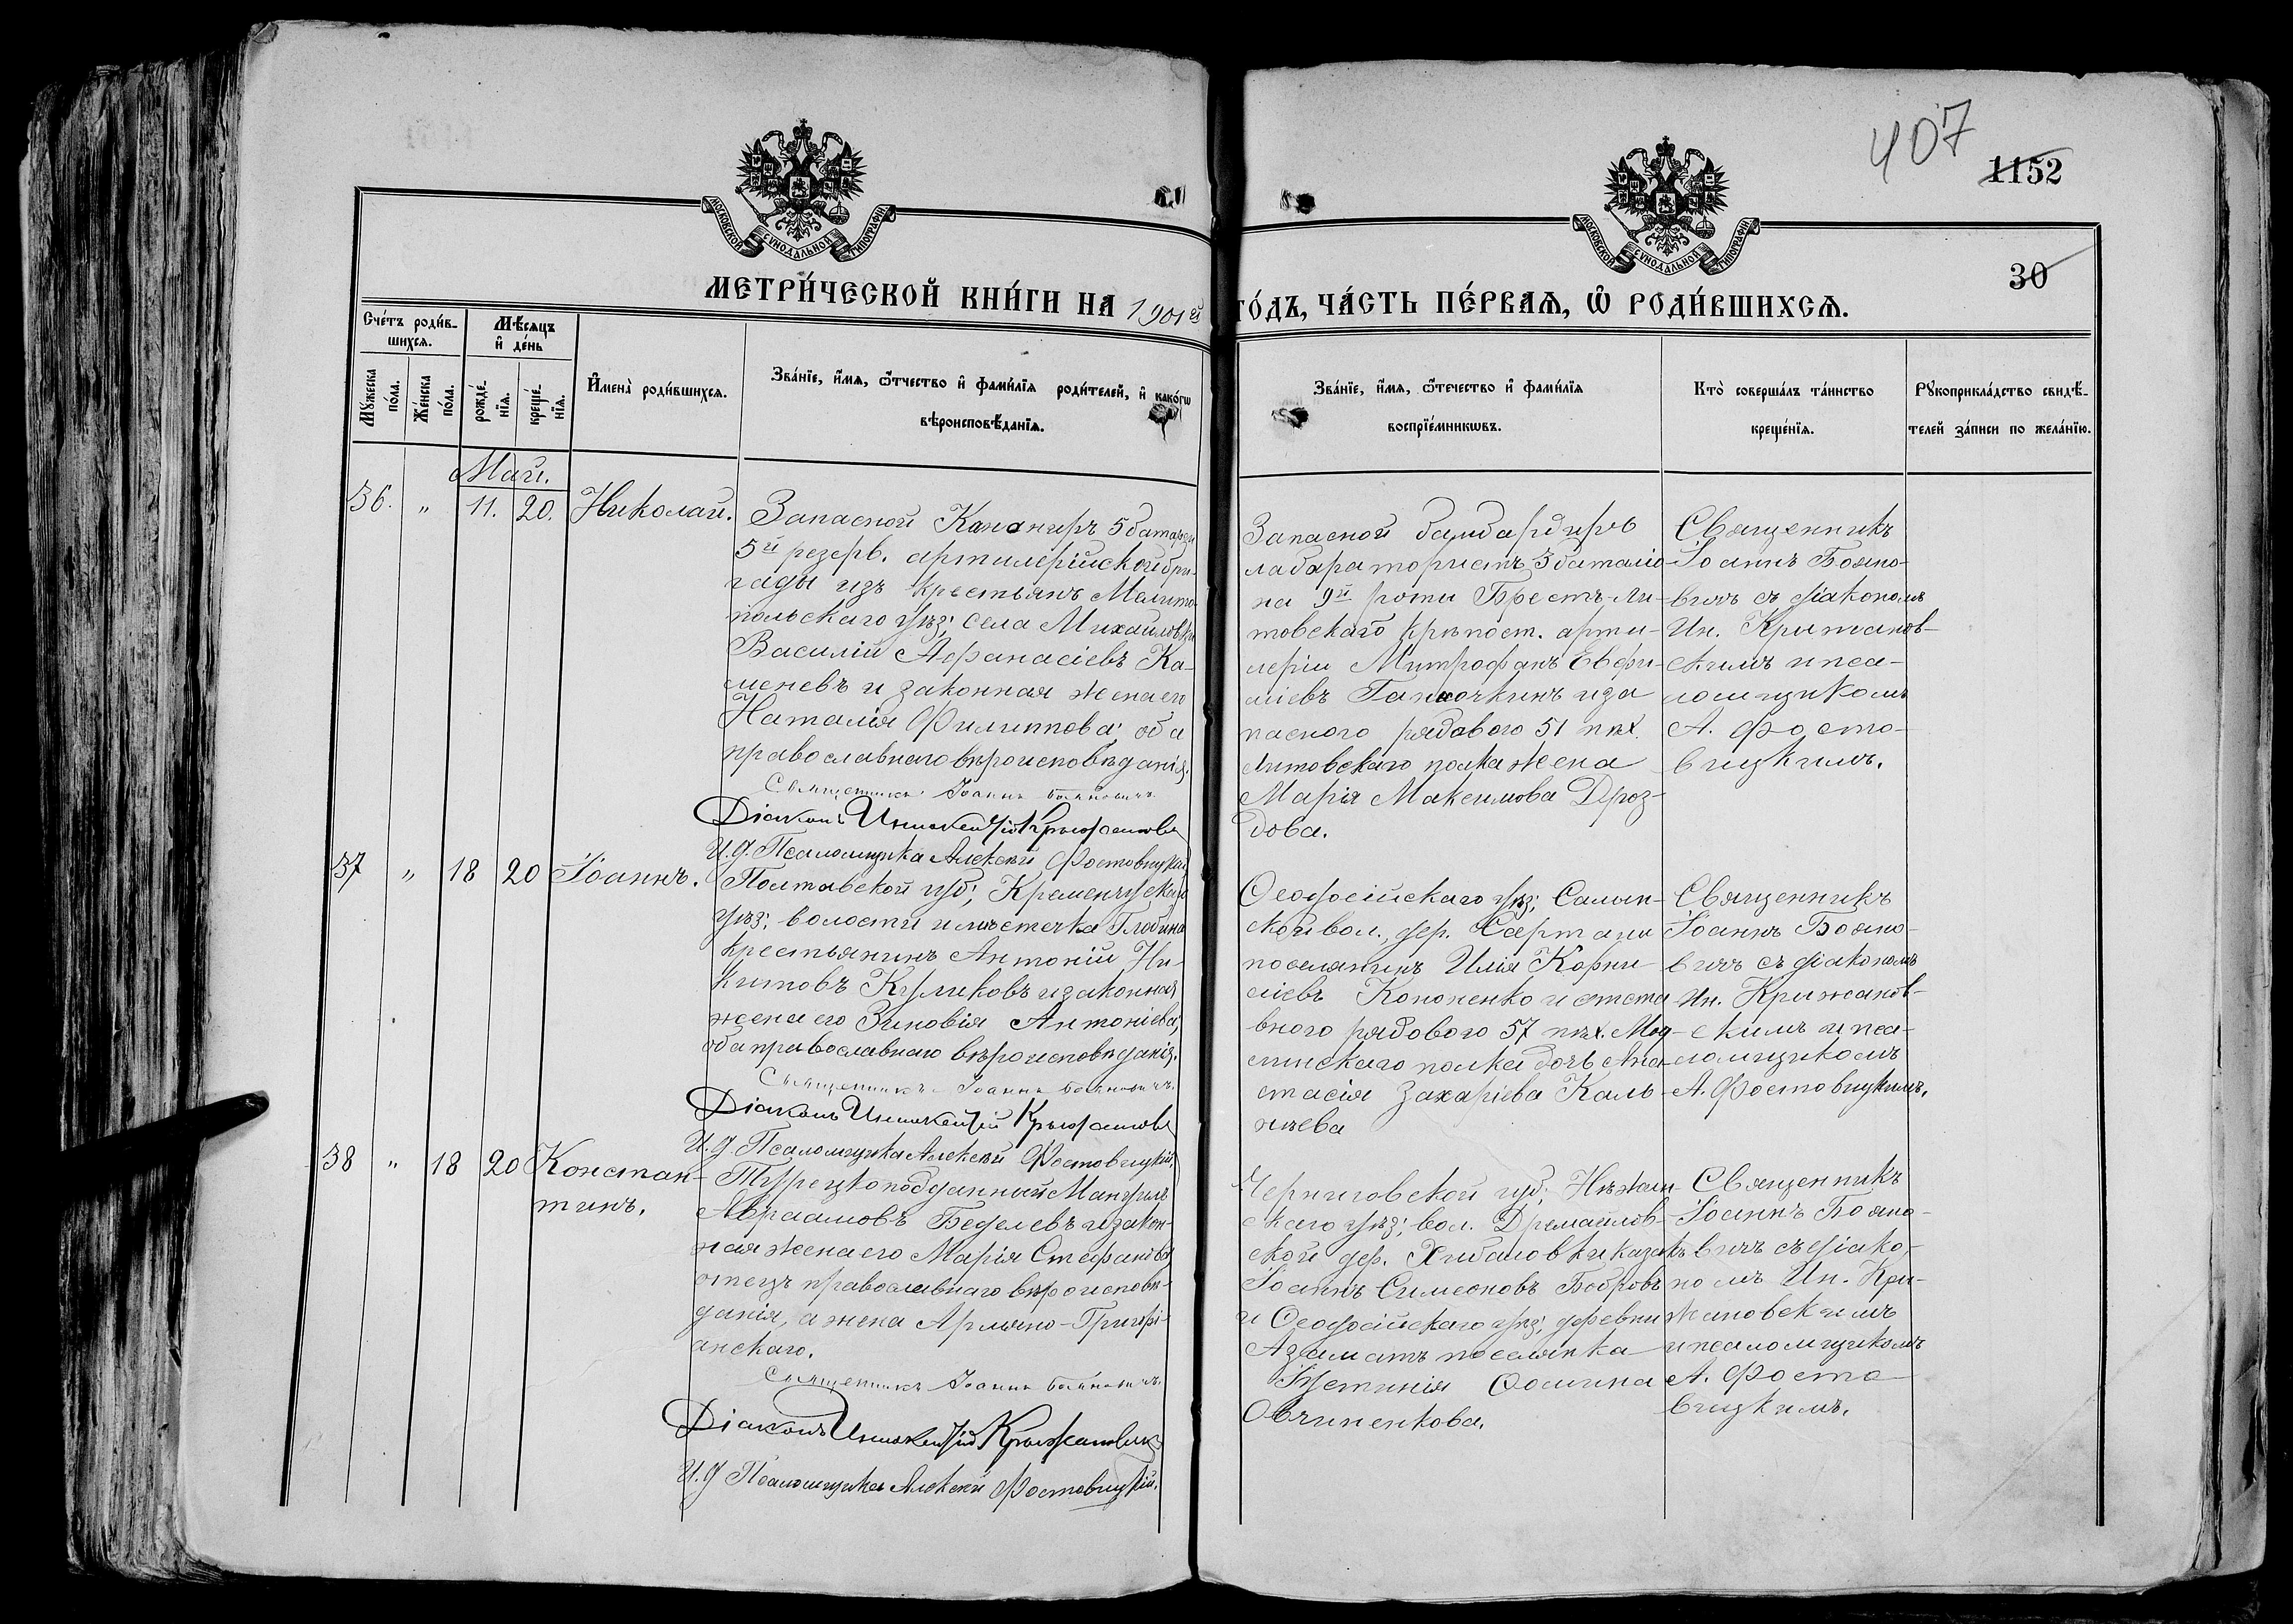 407
1152
30
МОСКОВСКОЙ СУНОДАЛЬНОЙ ТИПОГРАФІИ
МОСКОВСКОЙ СУНОДАЛЬНОЙ ТИПОГРАФІИ
МЕТРИ́ЧЕСКОЙ КНИ́ГИ НА 1901й ГО́ДЪ, ЧА́СТЬ ПЕ́РВАЯ, Ѡ҆ РОДИ́ВШИХСЯ.
Сче́тъ роди́в-
шихся.
Мѣ́сяцъ
и҆ де́нь
Мꙋ́жеска
по́ла.
Же́нска
по́ла.
рожде́-
нїя.
креще́-
нїя.
И҆мена̀ роди́вшихся.
Зва́нїе, и҆́мя, ѻ҆́тчество и҆ фами́лїя роди́телей, и҆ како́гѡ
вѣроисповѣ́данїя.
Зва́нїе, и҆́мя, ѻ҆́течество и҆ фами́лїя
воспрїе́мникѡвъ.
Кто̀ соверша́лъ та́инство
креще́нїя.
Рꙋкоприкла́дство свидѣ́-
телей за́писи по жела́нїю.
Май.
36. „ 11. 20. Николай.
Запасной Канониръ 5 батареи
5й резерв. артилерійской бри-
гады изъ крестьянъ Мелито-
польскаго уѣз; села Михайловки
Василій Аѳанасіевъ Ка-
меневъ и законная жена его
Наталія Филиппова; оба
православнаго вѣроисповѣданія.
Священникъ Іоаннъ Бояновичъ
Діаконъ Иннокентій Крыжановск
И. д. Псаломщика Алексѣй Фостовицкій
Запасной бамбардиръ
лабаратористъ 3 баталіо-
на 9й роты Брестъ-Ли-
товскаго крѣпост. арти-
леріи Митрофанъ Евфи-
міевъ Гапочкинъ и за
паснаго рядового 51 пѣх.
Литовскаго полка жена
Марія Максимова Дроз-
дова.
Священникъ
Іоаннъ Бояно-
вичъ съ діакономъ
Ин. Крижанов-
скимъ и пса-
ломщикомъ
А. Фосто-
вицкимъ.
37 „ 18 20 Іоаннъ.
Полтавской губ; Кременчугскаго
уѣз; волости и мѣстечка Глобина
крестьянинъ Антоній Ни-
китовъ Куликовъ и законная
жена его Зиновія Антоніева;
оба православнаго вѣроисповѣданія.
Священникъ Іоаннъ Бояновичъ.
Діаконъ Иннокентій Крыжановск
И. д. Псаломщика Алексѣй Фостовицкій.
Ѳеодосійскаго уѣз; Салын-
ской вол., дер. Сартаны
поселянинъ Илія Корни-
ліевъ Кононенко и отста
вного рядового 57 пѣх. Мод-
линскаго полка дочь Ана-
стасія Захаріева Каль-
нѣева
Священникъ
Іоаннъ Бояно-
вичъ съ діакономъ
Ин. Крижанов-
скимъ и пса-
ломщикомъ
А. Фостовицкимъ.
38 „ 18 20 Констан-
тинъ.
Турецкоподданный Мангулъ
Авраамовъ Беделевъ и закон-
ная жена его Марія Стефанова
отецъ православнаго вѣроисповѣ-
данія, а жена Армяно-Григорі-
анскаго.
Священникъ Іоаннъ Бояновичъ.
Діаконъ Иннокентій Крыжановск
И. д Псаломщика Алексѣй Фостовицкій.
Черниговской губ; Нѣжин-
скаго уѣз; вол. Дремайлов-
ской дер. Хибаловки казакъ
Іоаннъ Симеоновъ Бобровъ
и Ѳеодосійскаго уѣз; деревни
Азаматъ поселянка
Іустинія Ѳомина
Овчиненкова.
Священникъ
Іоаннъ Бояно-
вичъ съ діако-
номъ Ин. Кри-
жановскимъ
и псаломщикомъ
А. Фосто-
вицкимъ.